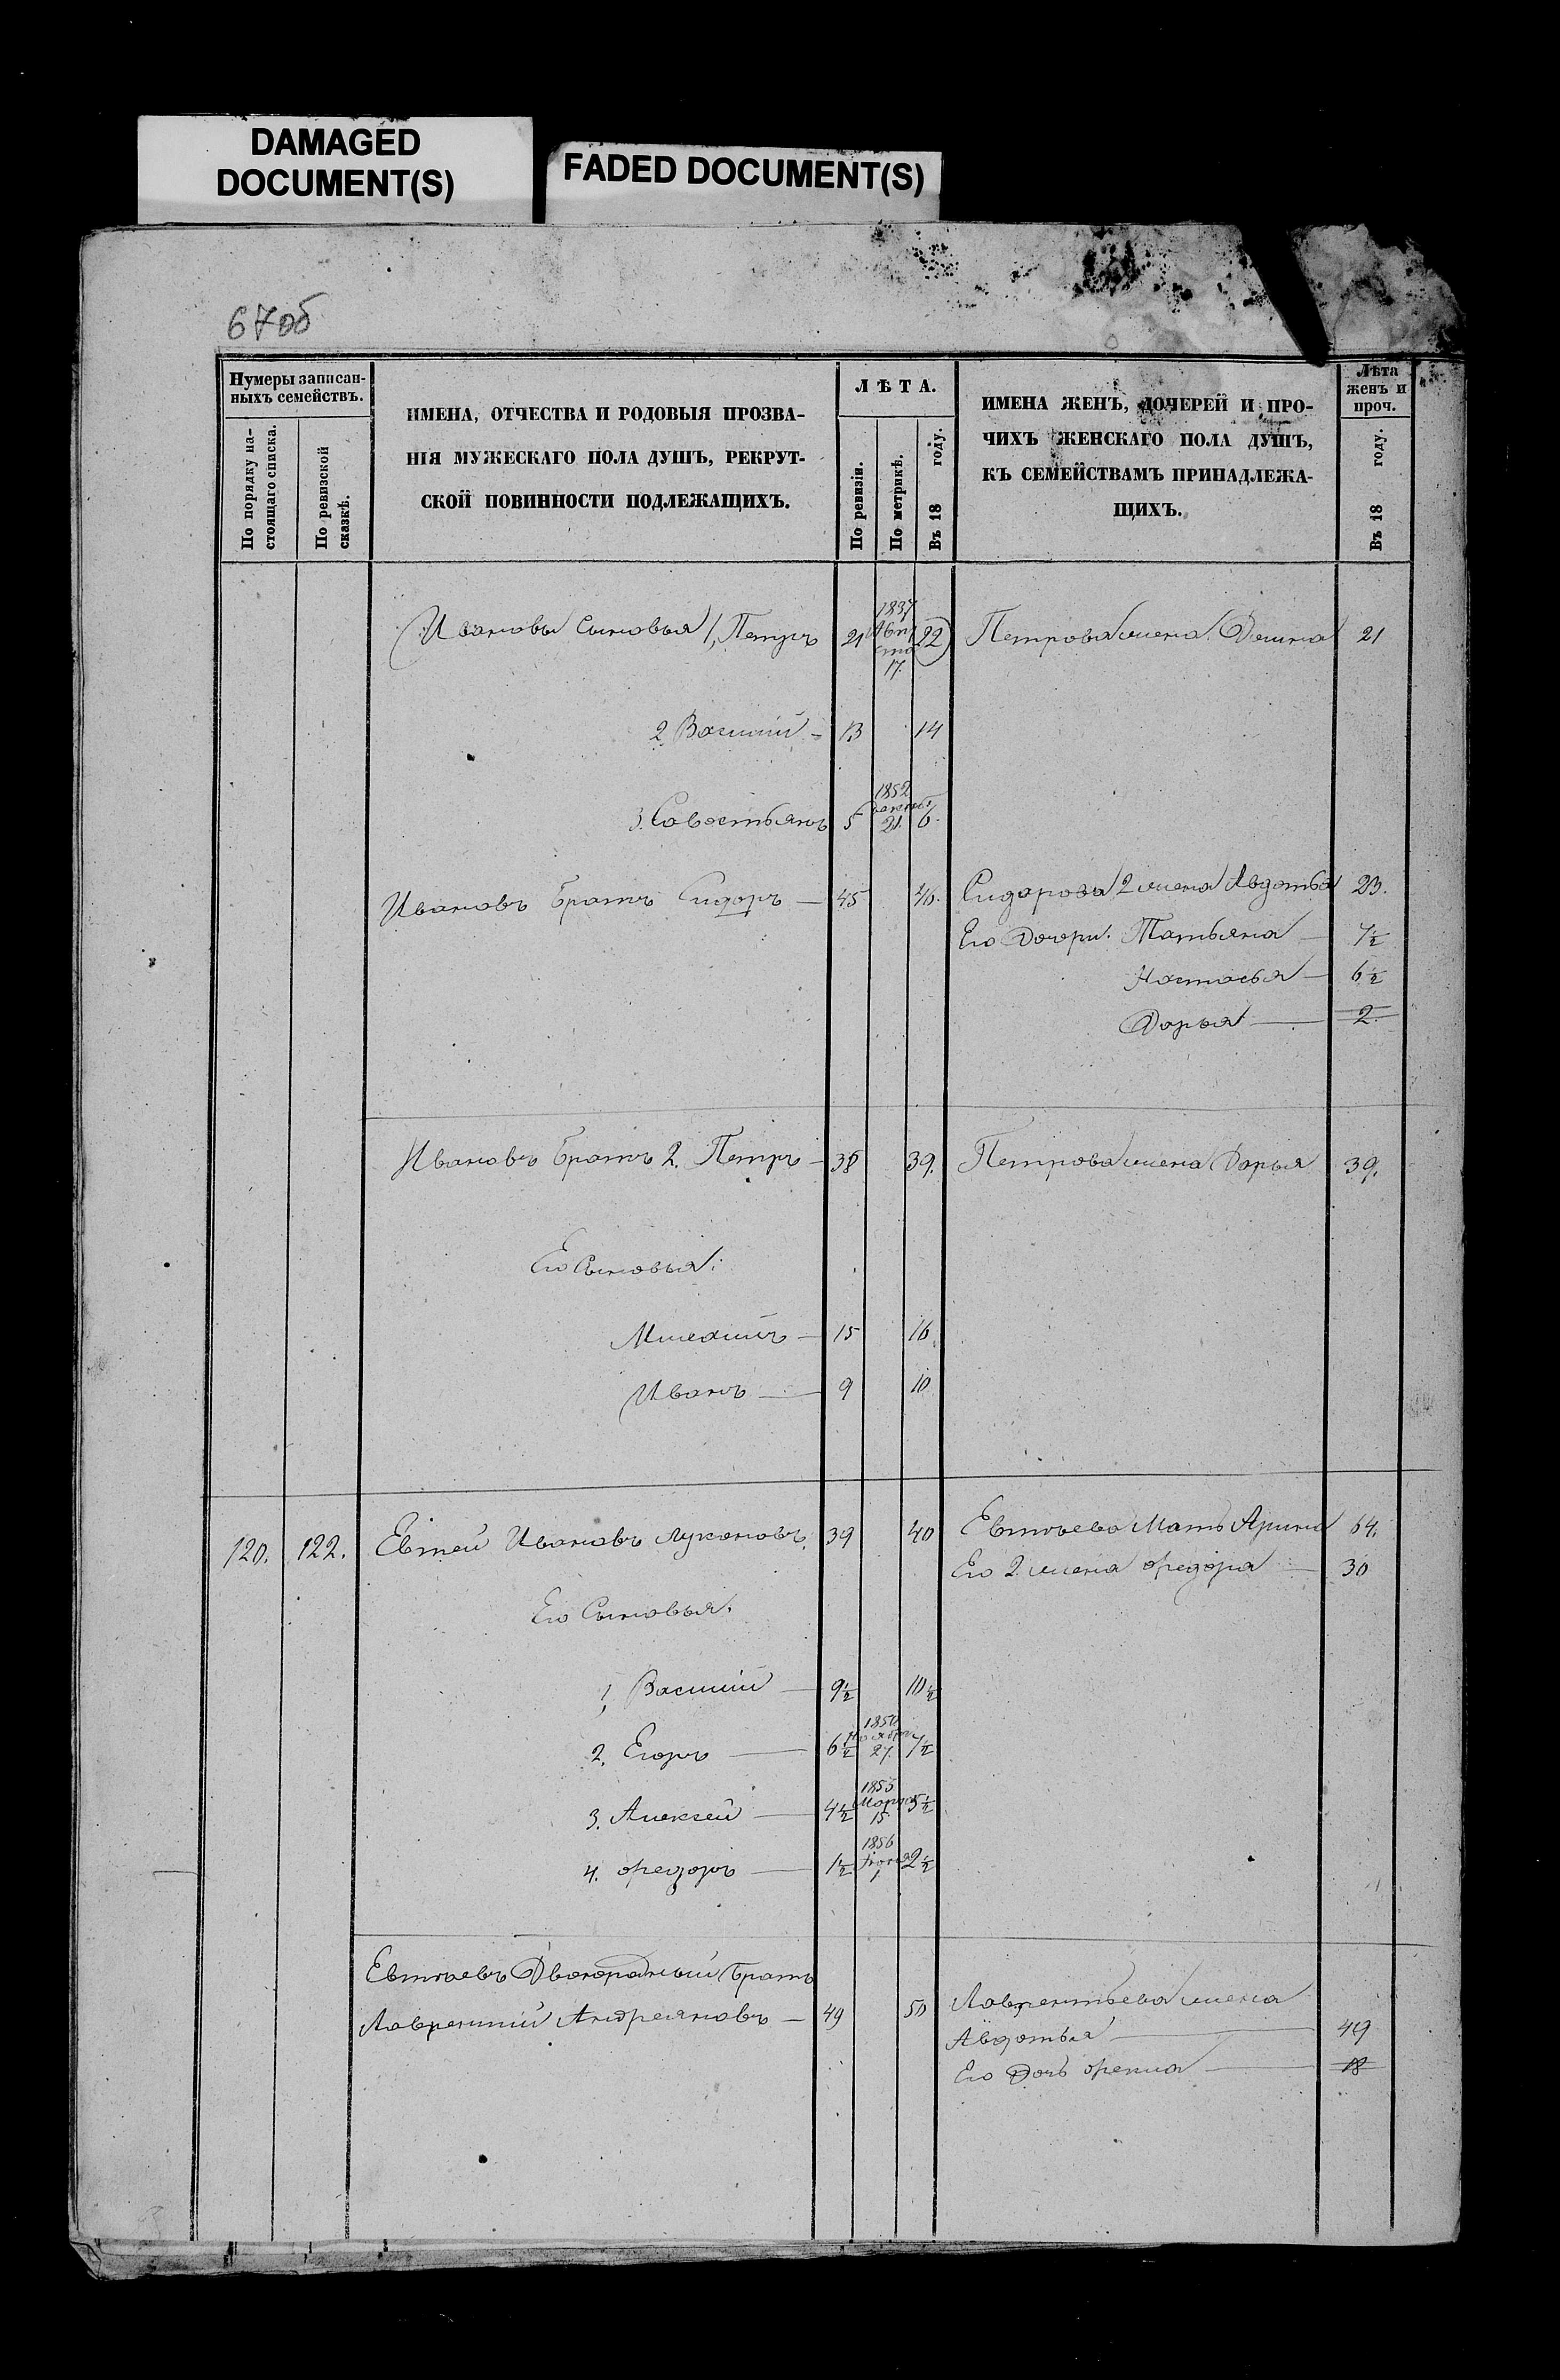 DAMAGED
DOCUMENT(S)
FADED DOCUMENT(S)
67об
Нумеры записан-
ныхъ семействъ.
По порядку на-
стоящаго списка.
По ревизской
сказкѣ.
ИМЕНА, ОТЧЕСТВА И РОДОВЫЯ ПРОЗВА-
НІЯ МУЖЕСКАГО ПОЛА ДУШЪ, РЕКРУТ-
СКОЙ ПОВИННОСТИ ПОДЛЕЖАЩИХЪ.
ЛѢТА.
По ревизіи.
По метрикѣ.
Въ 18 году.
ИМЕНА ЖЕНЪ, ДОЧЕРЕЙ И ПРО-
ЧИХЪ ЖЕНСКАГО ПОЛА ДУШЪ,
КЪ СЕМЕЙСТВАМЪ ПРИНАДЛЕЖА-
ЩИХЪ.
Лѣта
женъ и
проч.
Въ 18 году.
Ивановы Сыновья 1, Петръ 21 1837 Августа 17. 22 Петрова жена 21
2 Василій - 13 14
3. Савостьянъ 5 1852 21. 6.
Ивановъ братъ Сидоръ — 45 46. Сидорова 2 жена Авдотья 23.
Его Дочери. Татьяна — 7½
Настасья — 6½
Дарья — 2.
Ивановъ братъ 2. Петръ — 38 39. Петрова жена Дарья 39.
Его Сыновья:
Михаилъ — 15 16
Иванъ — 9 10
120. 122. Евтей Ивановъ Лукановъ. 39 40 Евтѣева Мать Арина 64.
Его 2 жена Федора — 30
Его Сыновья.
1, Василій — 9½ 10½
2. Егоръ — 6½ 1850 Ноября 27. 7½
3. Алексей — 4½ 1853 Марта 15 5½
4. Федоръ — 1½ 1856 1 2½
Евтѣевъ Двоюродный братъ
Лаврентій Андреяновъ — 49 50 Лаврентьева жена
Авдотья — 49
Его Дочь Фекла — 18